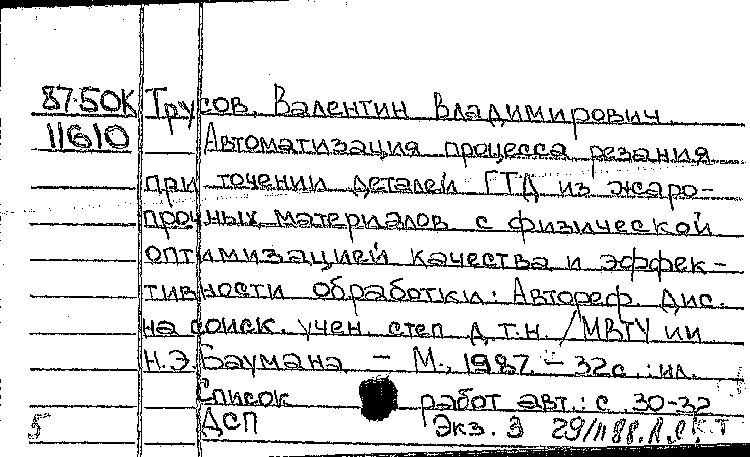 87-50К Трусов, Валентин Владимирович.
11610 Автоматизация процесса резания
при точении деталей ГТД из жаро-
прочных материалов с физической
оптимизацией качества и эффек-
тивности обработки: Автореф. дис.
на соиск. учен. степ д.т.н. /МВТУ им
Н.Э.Баумана – М., 1987. – 32с.: ил.
Список работ авт.: с. 30-32
5 ДСП Экз. 3 29/II 88.